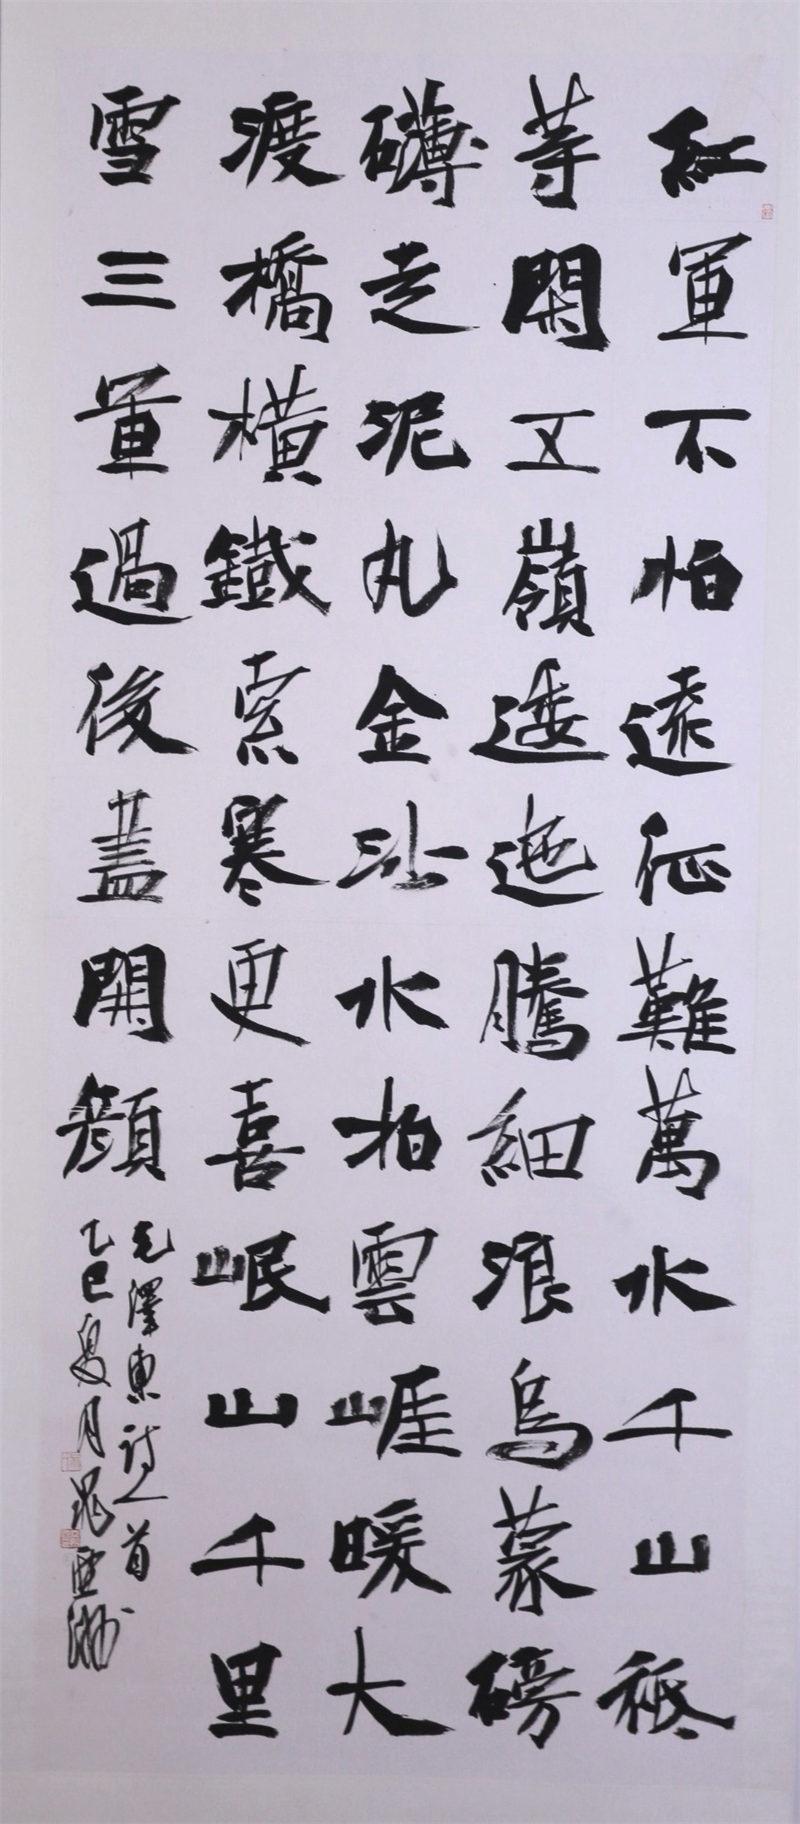 紅軍不怕遠征難萬水千山衹
等閑五嶺逶迤騰細浪烏蒙磅
礴走泥丸金沙水拍雲崕暖大
渡橋橫鐵索寒更喜岷山千里
雪三軍過後盡開顏
毛澤東詩一首
乙巳夏月亞洲